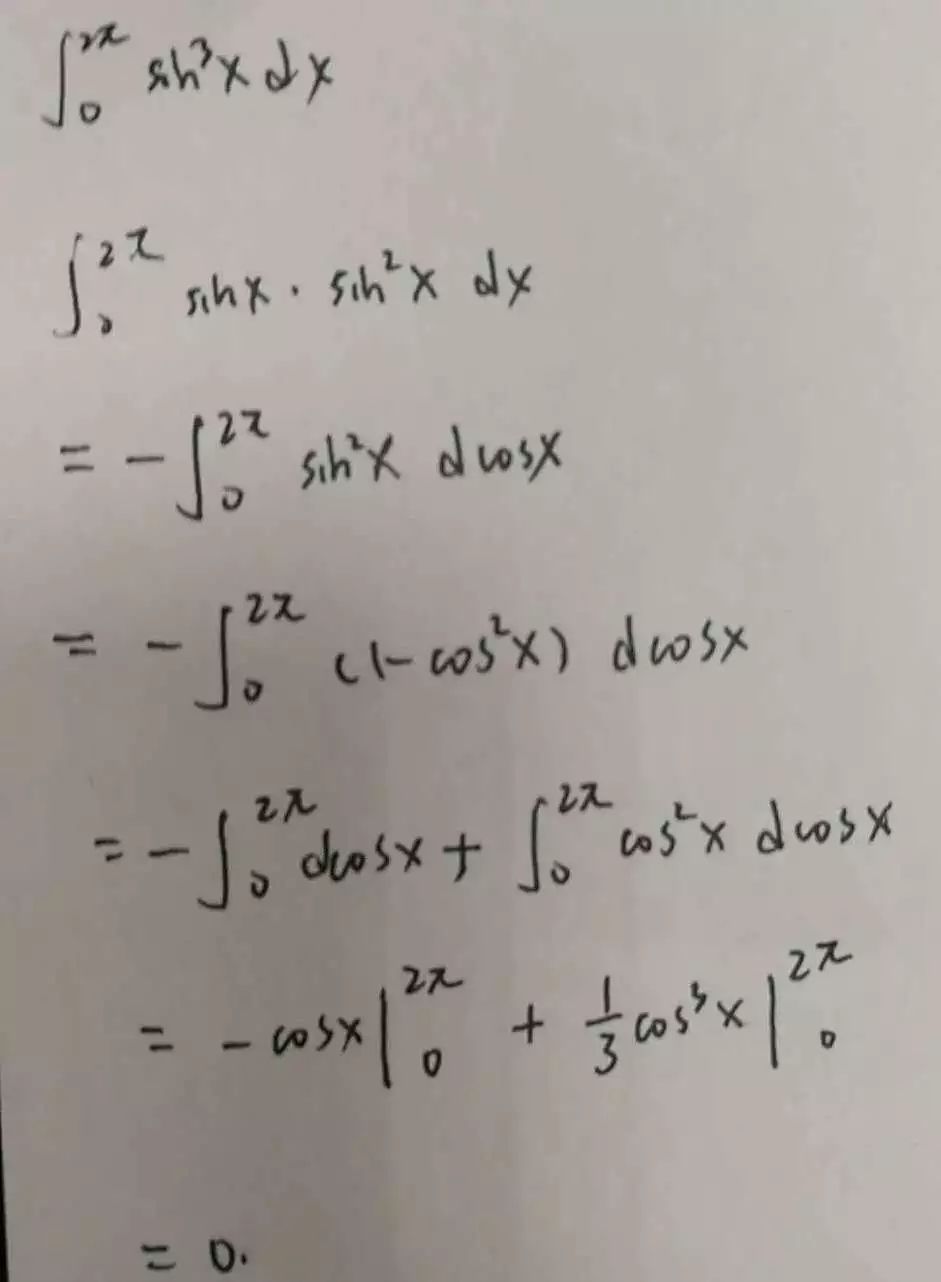 ∫₀^{2π} sin³x dx
∫₀^{2π} sinx · sin²x dx
= - ∫₀^{2π} sin²x dcosx
= - ∫₀^{2π} (1-cos²x) dcosx
= - ∫₀^{2π} dcosx + ∫₀^{2π} cos²x dcosx
= - cosx |₀^{2π} + 1/3 cos³x |₀^{2π}
= 0.